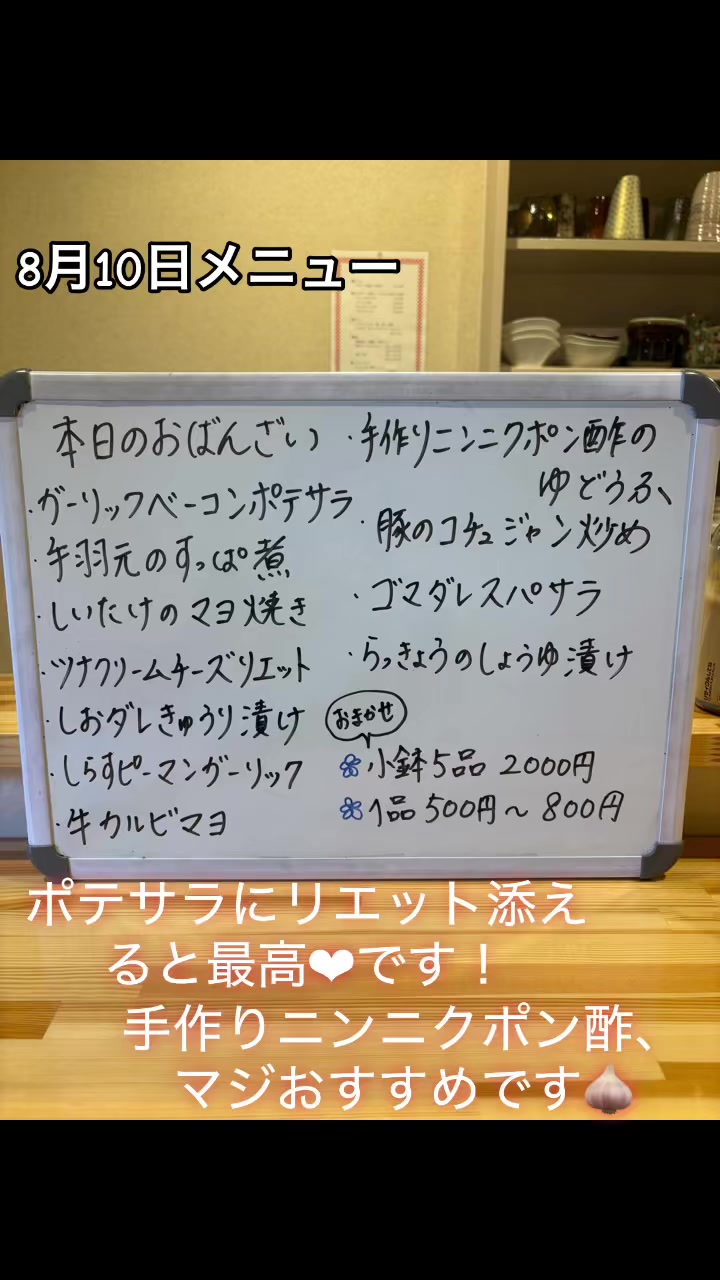 8月10日メニュー
本日のおばんざい
・ガーリックベーコンポテサラ
・手羽元のすっぱ煮
・しいたけのマヨ焼き
・ツナクリームチーズリエット
・しおダレきゅうり漬け
・しらすピーマンガーリック
・牛カルビマヨ
・手作りニンニクポン酢の
ゆどうふ、
・豚のコチュジャン炒め
・ゴマダレスパサラ
・らっきょうのしょうゆ漬け
おまかせ
小鉢5品 2000円
1品500円〜800円
ポテサラにリエット添え
ると最高❤です！
手作りニンニクポン酢、
マジおすすめです🧄